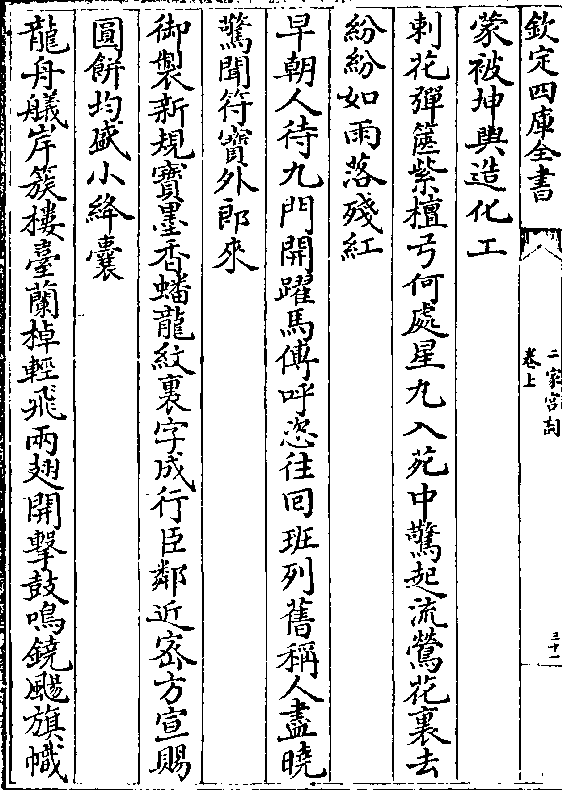 欽定四庫全書
二家宮詞
卷上
三十一
蒙被坤輿造化工
刺花彈篋紫檀弓何處星丸入苑中驚起流鶯花裏去
紛紛如雨落殘紅
早朝人待九門開躍馬傳呼恣往回班列舊稱人盡曉
驚聞符寶外郎來
御製新規寶墨香蟠龍紋裏字成行臣鄰近密方宣賜
圓餅均盛小絳囊
龍舟艤岸簇樓臺蘭棹輕飛兩翅開擊鼓鳴鐃颺旗幟